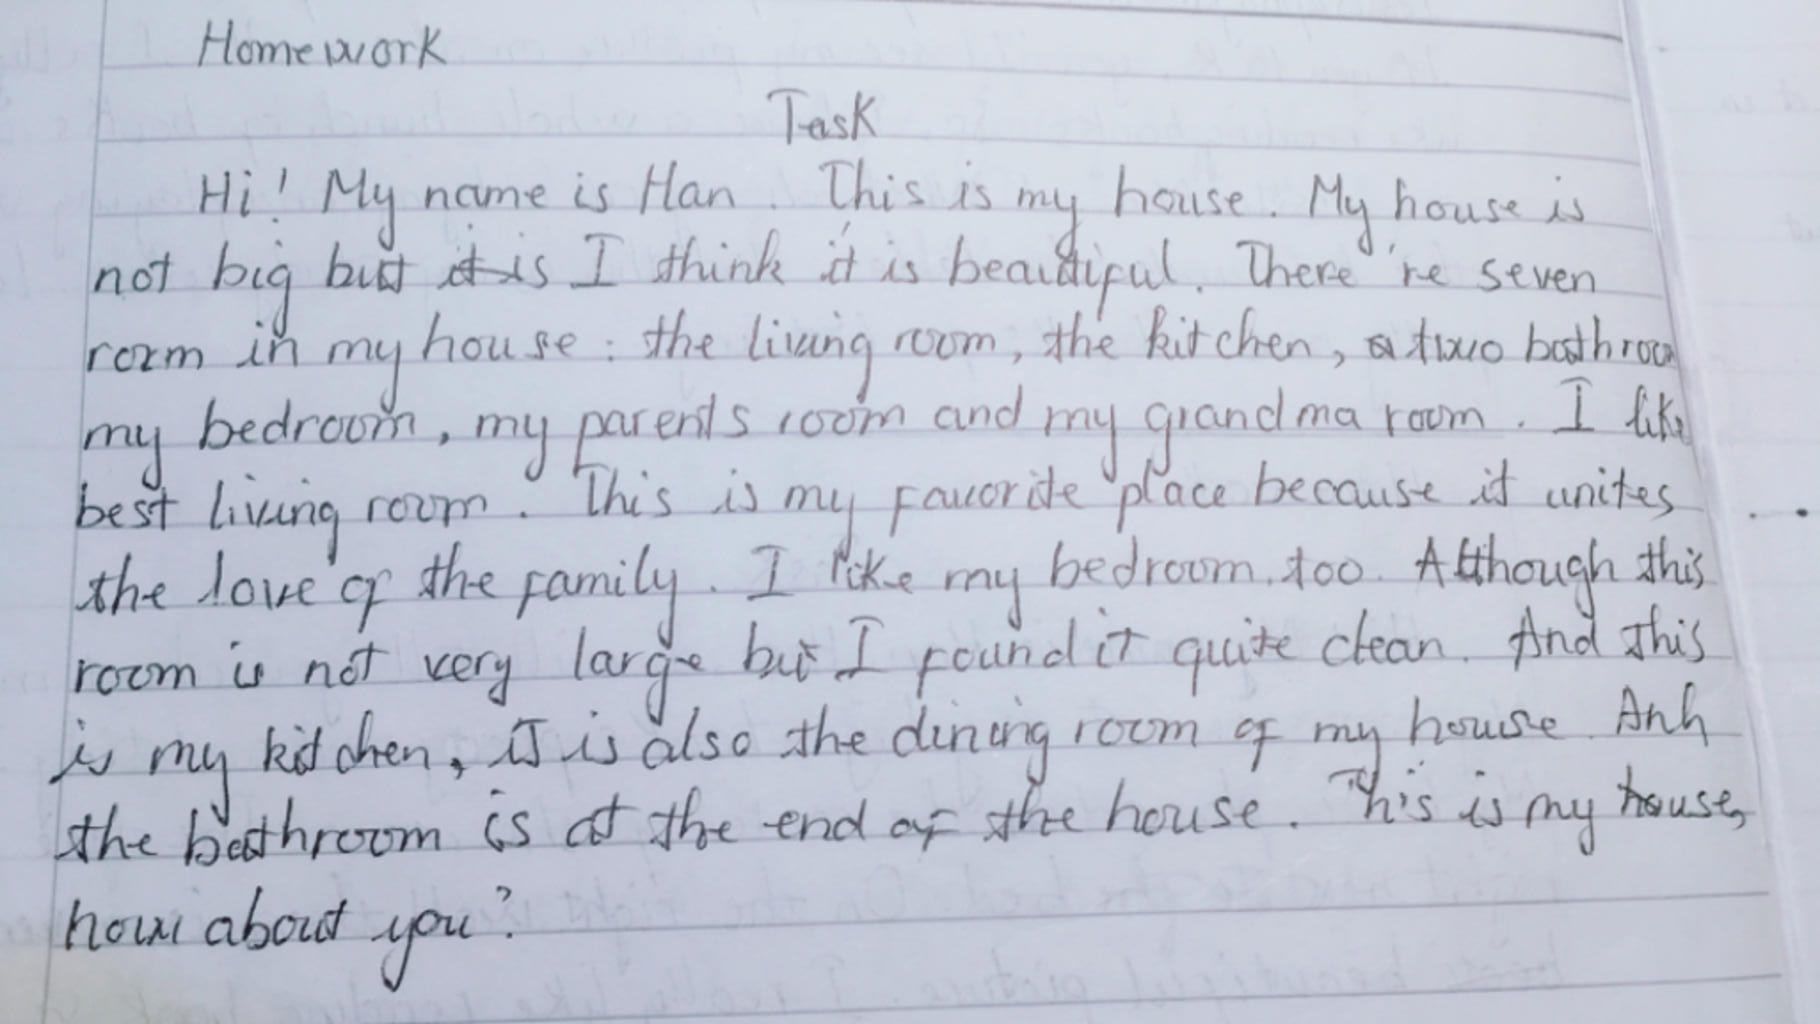 Homework
Task
Hi! My name is Han. This is my house. My house is
not big but it is I think it is beautiful. There 're seven
room in my house: the living room, the kitchen, a two bathroom
my bedroom, my parents room and my grandma room. I like
best living room. This is my favorite place because it unites
the love of the family. I like my bedroom too. Although this
room is not very large but I found it quite clean. And this
is my kitchen, it is also the dining room of my house. Anh
the bathroom is at the end of the house. This is my house,
how about you?